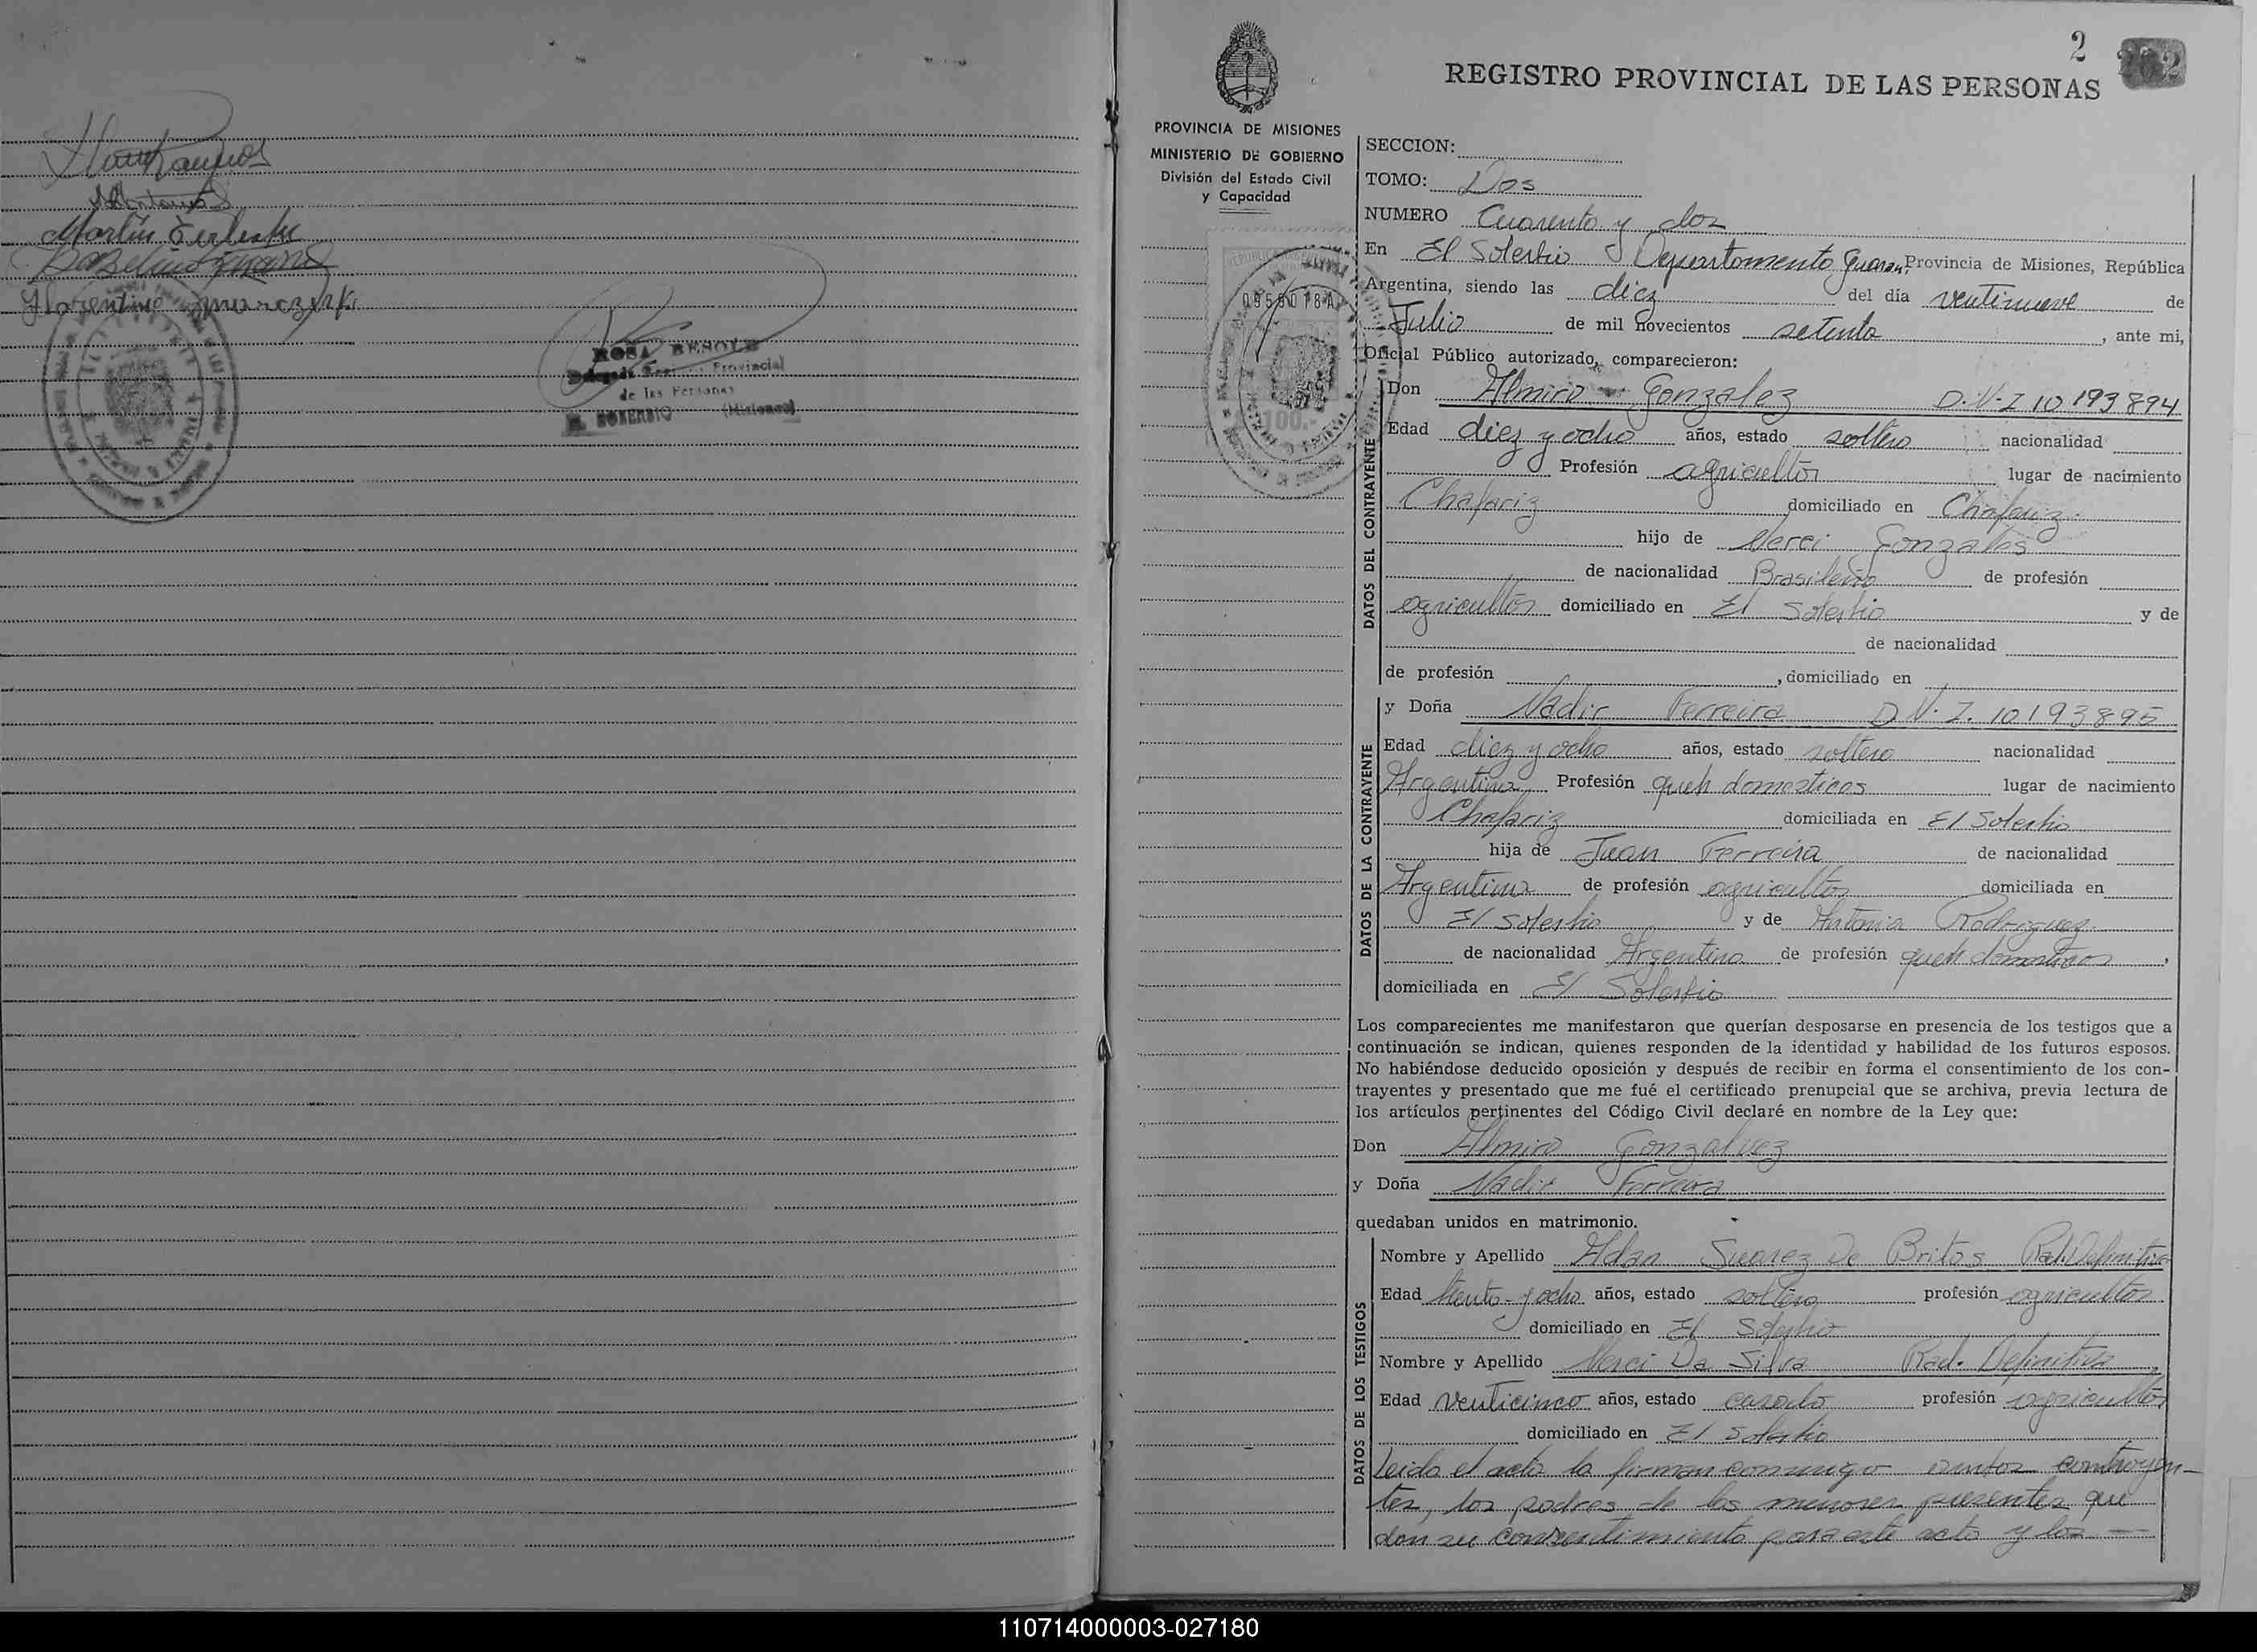 Martin
Florentino
ROSA
Delegada Provincial
de las Personas
EL SOBERBIO (Misiones)
2
202
REGISTRO PROVINCIAL DE LAS PERSONAS
PROVINCIA DE MISIONES
MINISTERIO DE GOBIERNO
División del Estado Civil
y Capacidad
SECCION:
TOMO: Dos
NUMERO Cuarenta y dos
En El Soberbio Departamento Guarani Provincia de Misiones, República
Argentina, siendo las diez del día ventinueve de
Julio de mil novecientos setenta, ante mi,
Oficial Público autorizado, comparecieron:
DATOS DEL CONTRAYENTE
Don Almiro Gonzalez D.N.I 10193894
Edad diez y ocho años, estado soltero nacionalidad
Profesión agricultor lugar de nacimiento
Chafariz domiciliado en Chafariz.
hijo de Gonzales
de nacionalidad Brasileño de profesión
agricultor domiciliado en El Soberbio y de
de nacionalidad
de profesión , domiciliado en
DATOS DE LA CONTRAYENTE
y Doña Nadir Ferreira D.N.I. 10193895
Edad diez y ocho años, estado soltera nacionalidad
Argentina Profesión queh domesticos lugar de nacimiento
Chafariz domiciliada en El Soberbio
hija de Juan Ferreira de nacionalidad
Argentina de profesión agricultor domiciliada en
El Soberbio y de Antonia Rodriguez.
de nacionalidad Argentina de profesión queh domesticos,
domiciliada en El Soberbio
Los comparecientes me manifestaron que querían desposarse en presencia de los testigos que a
continuación se indican, quienes responden de la identidad y habilidad de los futuros esposos.
No habiéndose deducido oposición y después de recibir en forma el consentimiento de los con-
trayentes y presentado que me fué el certificado prenupcial que se archiva, previa lectura de
los artículos pertinentes del Código Civil declaré en nombre de la Ley que:
Don Almiro Gonzalvez
y Doña Nadir Ferreira
quedaban unidos en matrimonio.
DATOS DE LOS TESTIGOS
Nombre y Apellido Adan Suarez De Britos Rad. Definitiva
Edad treinta y ocho años, estado soltero profesión agricultor
domiciliado en El Soberbio
Nombre y Apellido Da Silva Rad. Definitiva
Edad venticinco años, estado casado profesión agricultor
domiciliado en El Soberbio
Leida el acta la firman conmigo ambos contrayen-
tes, los padres de los menores presentes que
dan su consentimiento para este acto y los —
110714000003-027180